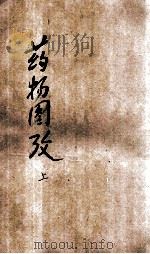 药物图攷
上
mtoou.info/